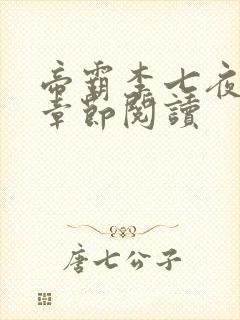 帝霸李七夜
章節閱讀
唐七公子